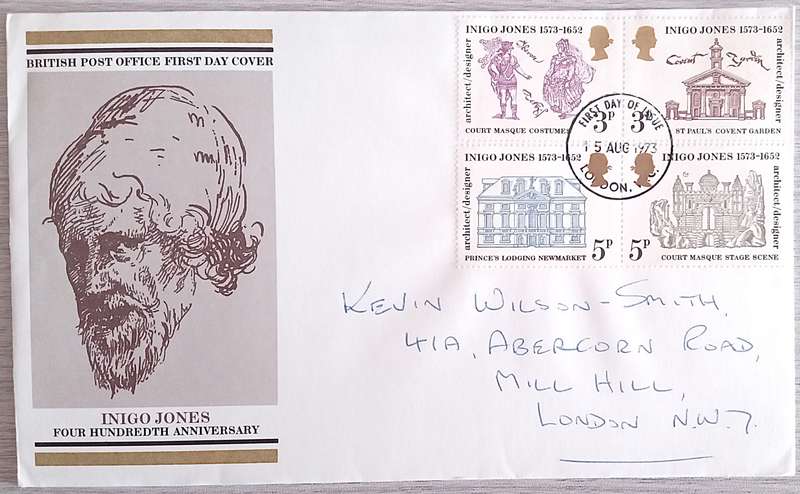 BRITISH POST OFFICE FIRST DAY COVER
INIGO JONES
FOUR HUNDREDTH ANNIVERSARY
INIGO JONES 1573-1652
architect/designer
3P
COURT MASQUE COSTUMES
INIGO JONES 1573-1652
architect/designer
Covent Garden
3P
ST PAUL'S COVENT GARDEN
INIGO JONES 1573-1652
architect/designer
PRINCE'S LODGING NEWMARKET
5P
INIGO JONES 1573-1652
architect/designer
5P
COURT MASQUE STAGE SCENE
FIRST DAY OF ISSUE
15 AUG 1973
LONDON,
KEVIN WILSON-SMITH,
41A, ABERCORN ROAD,
MILL HILL,
LONDON N.W.7.